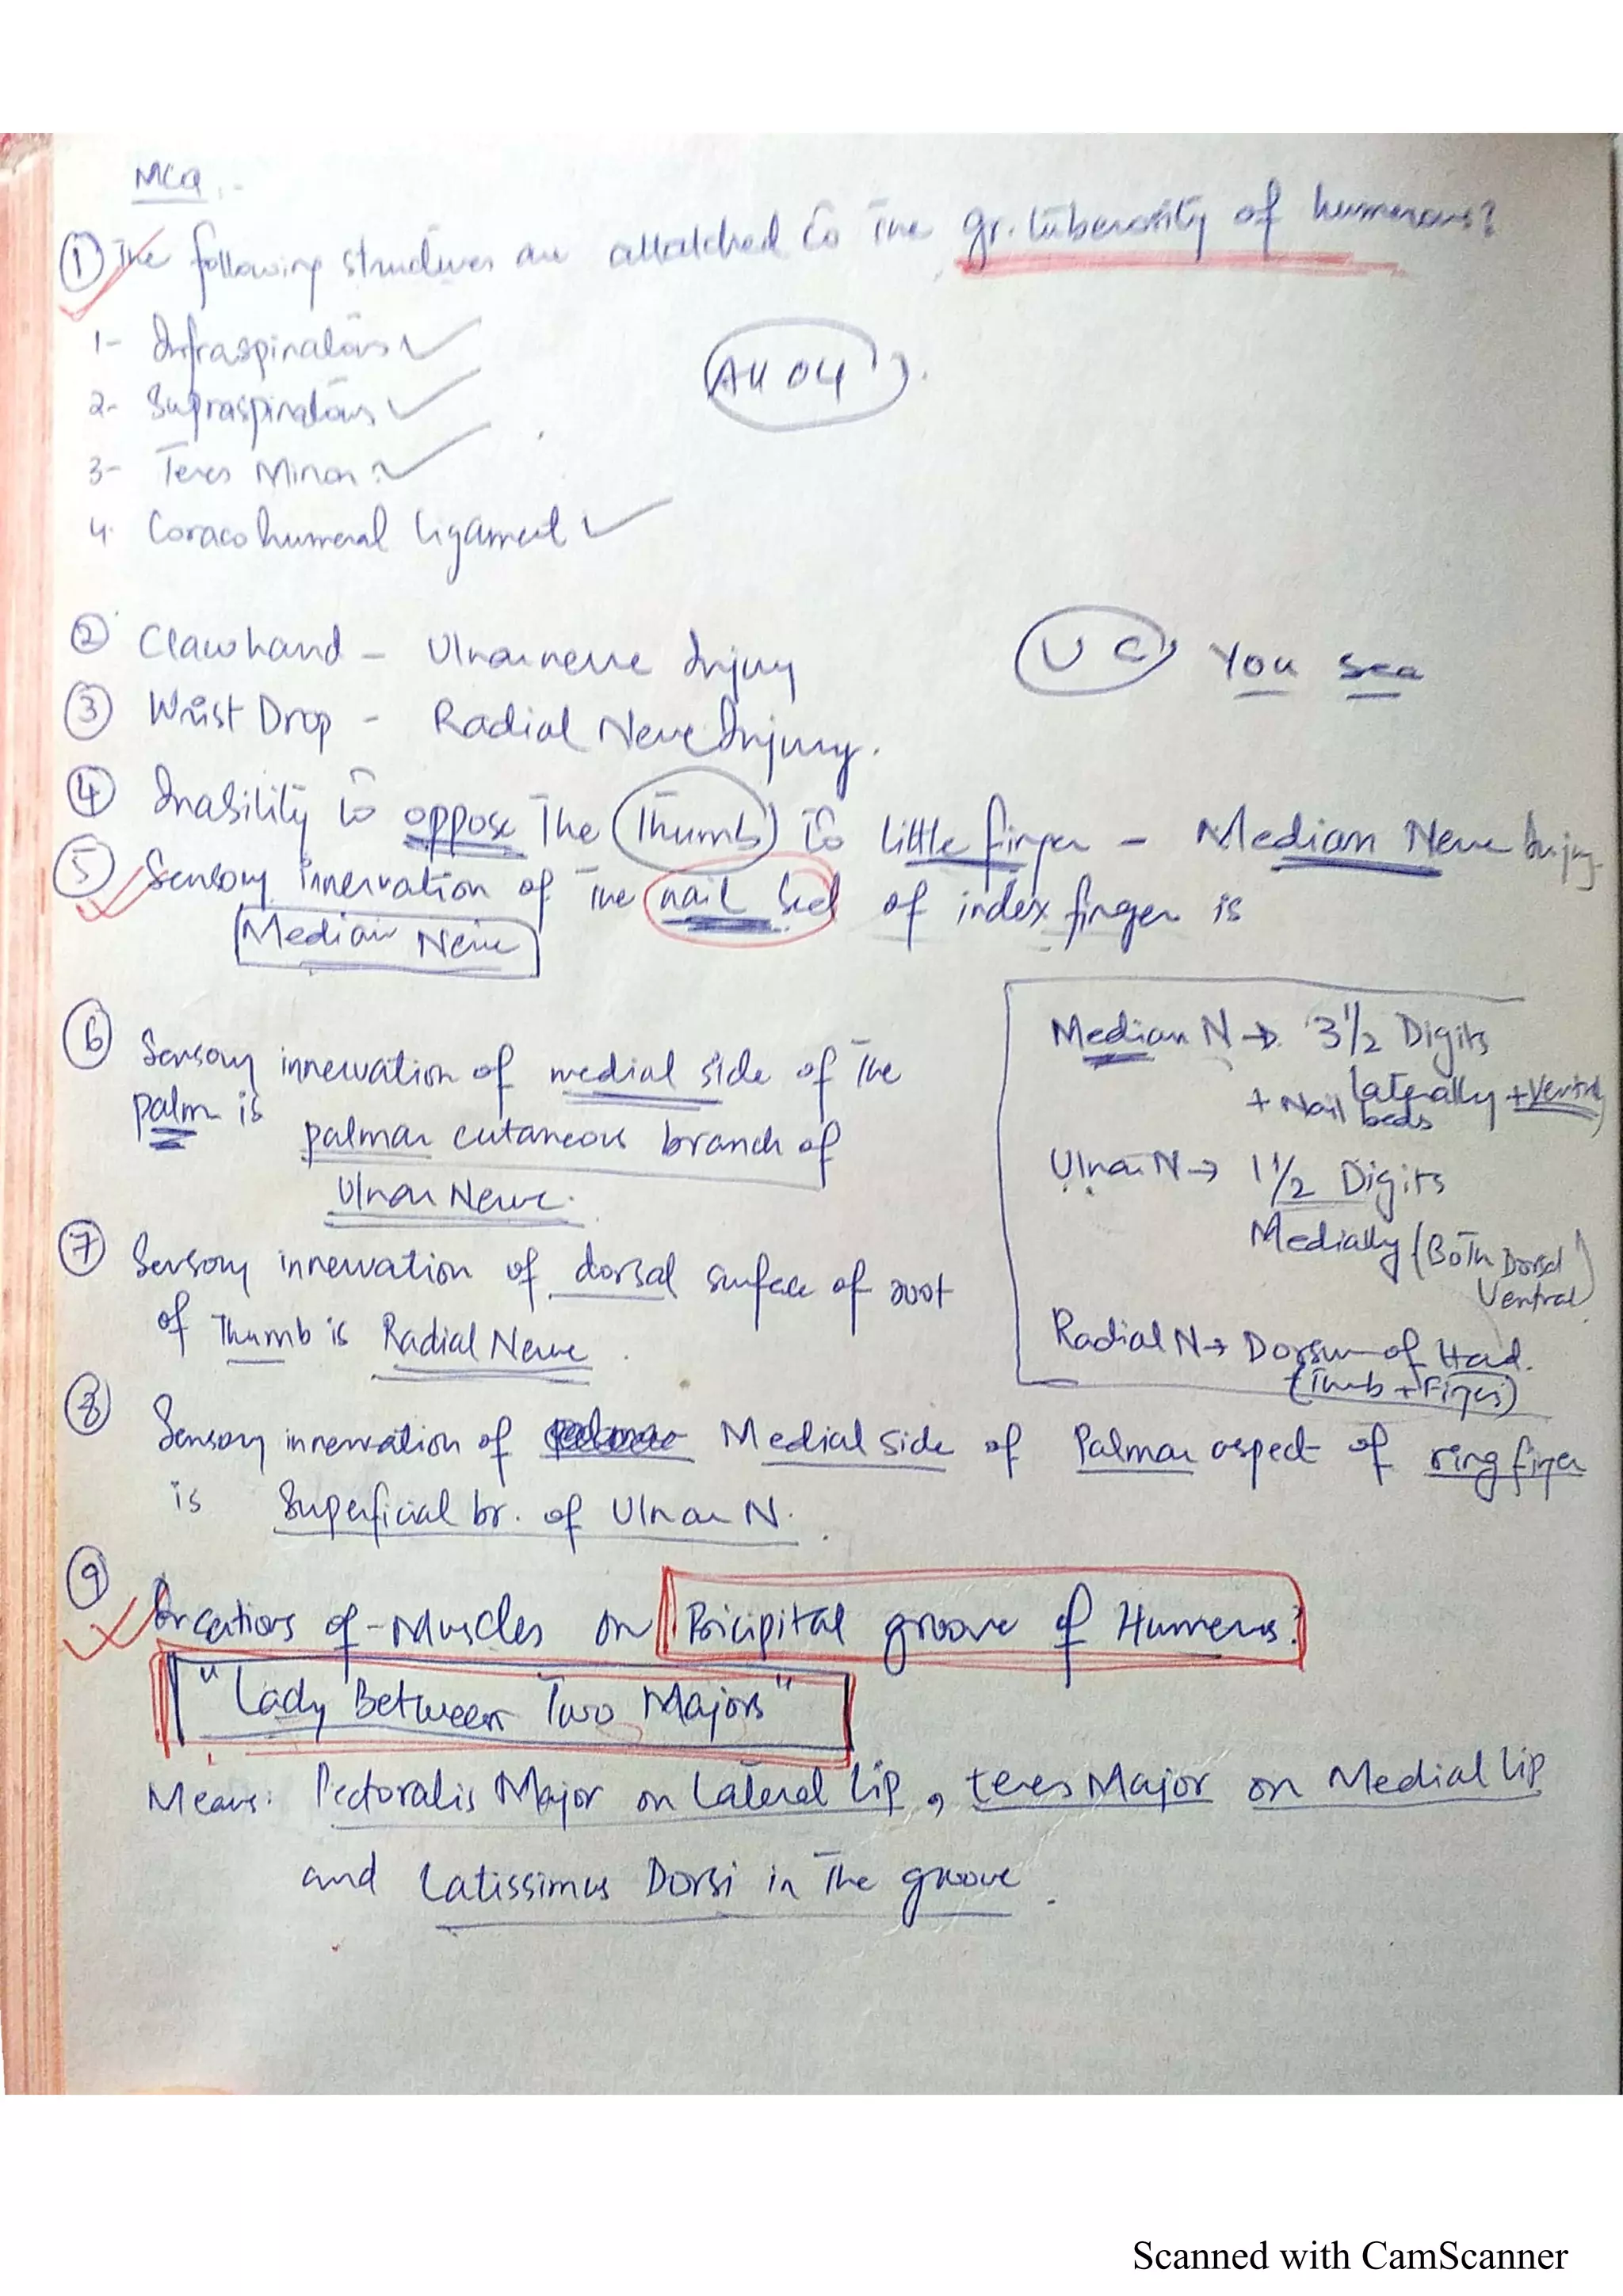 MCQ.-
① The following structures are attatched to the gr. tuberosity of humerous?
1- Infraspinatous ✓
2- Supraspinatous ✓
(All 04).
3- Teres Minor ✓
4. Coraco humeral ligament ✓
② Clawhand - Ulnar nerve Injury
(U C) You See
③ Wrist Drop - Radial Nerve Injury.
④ Inability to oppose The Thumb to little finger - Median Nerve Injury
⑤ Sensory innervation of the nail bed of index finger is
Median Nerve
⑥ Sensory innervation of medial side of the
palm is
palmar cutaneous branch of
Ulnar Nerve.
Median N → 3 1/2 Digits
laterally + Ventral
+ Nail beds
Ulnar N → 1 1/2 Digits
Medially (Both Dorsal
Ventral)
Radial N → Dorsum of Hand.
(Thumb + Fingers)
⑦ Sensory innervation of dorsal surface of root
of Thumb is Radial Nerve.
⑧ Sensory innervation of Medial side of Palmar aspect of ring finger
is Superficial br. of Ulnar N.
⑨ Insertions of Muscles on Bicipital groove of Humerus?
"Lady Between Two Majors"
Means: Pectoralis Major on Lateral Lip, teres Major on Medial Lip
and Latissimus Dorsi in The groove.
Scanned with CamScanner